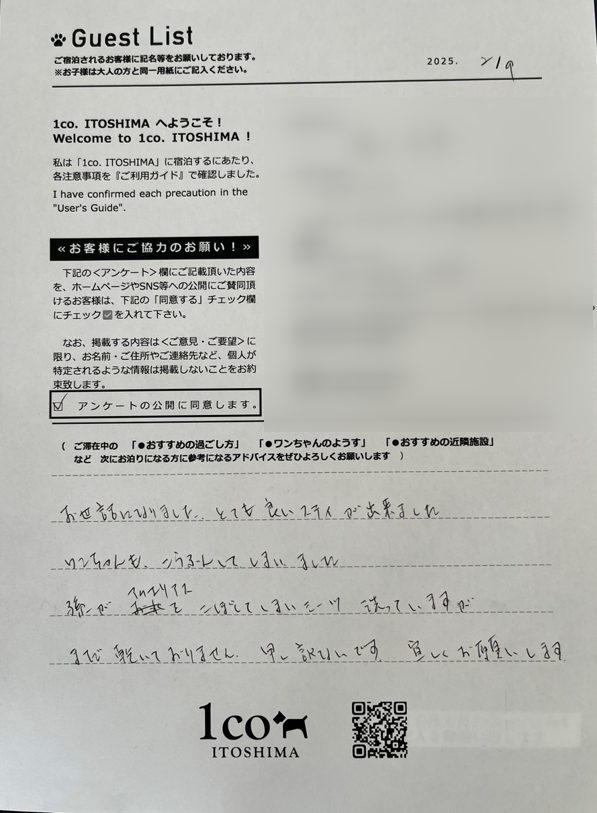 Guest List
ご宿泊されるお客様に記名等をお願いしております。
※お子様は大人の方と同一用紙にご記入ください。
2025. 2/19
1co. ITOSHIMA へようこそ！
Welcome to 1co. ITOSHIMA !
私は「1co. ITOSHIMA」に宿泊するにあたり、
各注意事項を『ご利用ガイド』で確認しました。
I have confirmed each precaution in the
"User's Guide".
≪お客様にご協力のお願い！≫
下記の<アンケート>欄にご記載頂いた内容
を、ホームページやSNS等への公開にご賛同頂
けるお客様は、下記の「同意する」チェック欄
にチェック☑を入れて下さい。
なお、掲載する内容は<ご意見・ご要望>に
限り、お名前・ご住所やご連絡先など、個人が
特定されるような情報は掲載しないことをお約
束致します。
☑ アンケートの公開に同意します。
( ご滞在中の 「●おすすめの過ごし方」 「●ワンちゃんのようす」 「●おすすめの近隣施設」
など 次にお泊りになる方に参考になるアドバイスをぜひよろしくお願いします )
お世話になりました。とても良いステイが出来ました
ワンちゃんも、こうふんしてしまいました
孫が を こぼしてしまいシーツ 洗っていますが
まだ乾いておりません。申し訳ないです。宜しくお願いします
1co
ITOSHIMA